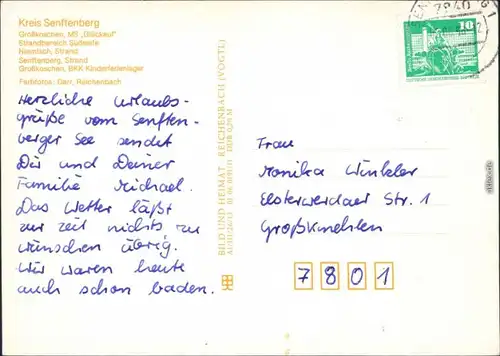 Kreis Senftenberg
Großkoschen, MS „Glückauf"
Strandbereich Südseite
Niemtsch, Strand
Senftenberg, Strand
Großkoschen, BKK Kinderferienlager
Farbfotos: Darr, Reichenbach
Herzliche Urlaubs-
grüße vom Senften-
berger See sendet
Dir und Deiner
Familie Michael.
Das Wetter läßt
zur zeit nichts zu
wünschen übrig.
Wir waren heute
auch schon baden.
BILD UND HEIMAT REICHENBACH (VOGTL)
7840
10
Frau
Monika Winkler
Elsterwerdaer Str. 1
Großkmehlen
7801